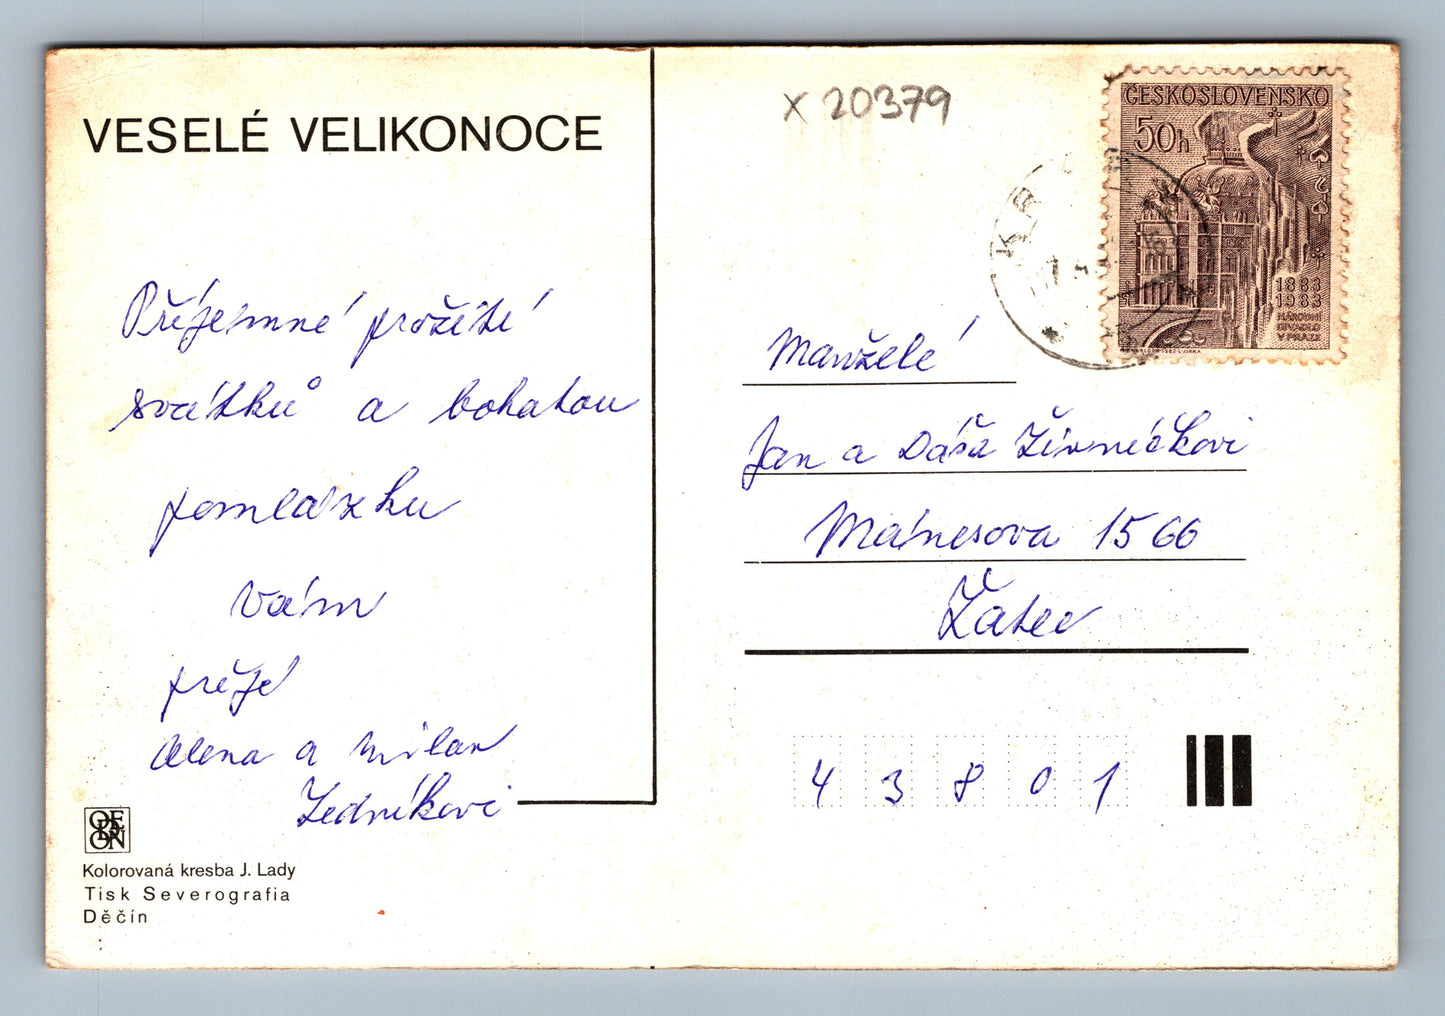 VESELÉ VELIKONOCE
x 20379
ČESKOSLOVENSKO
50h
1883
1983
NÁRODNÍ
DIVADLO
V PRAZE
Příjemné prožití
svátků a bohatou
pomlázku
Vám
přeje
Alena a Milan
Zedníkovi
Manželé
Jan a Dáša Živnůčkovi
Mánesova 1566
Žatec
4 3 8 0 1
ODEON
Kolorovaná kresba J. Lady
Tisk Severografia
Děčín